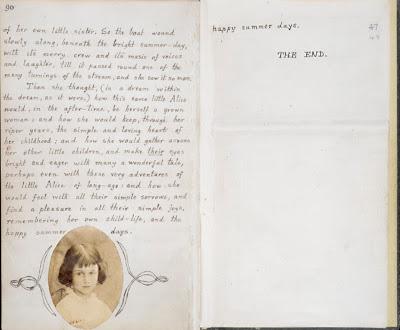 90
of her own little sister. So the boat wound
slowly along, beneath the bright summer-day,
with its merry crew and its music of voices
and laughter, till it passed round one of the
many turnings of the stream, and she saw it no more.
Then she thought, (in a dream within
the dream, as it were,) how this same little Alice
would, in the after-time, be herself a grown
woman: and how she would keep, through her
riper years, the simple and loving heart of
her childhood: and how she would gather around
her other little children, and make their eyes
bright and eager with many a wonderful tale,
perhaps even with these very adventures of
the little Alice of long-ago: and how she
would feel with all their simple sorrows, and
find a pleasure in all their simple joys,
remembering her own child-life, and the
happy summer days.
happy summer days.
47
THE END.